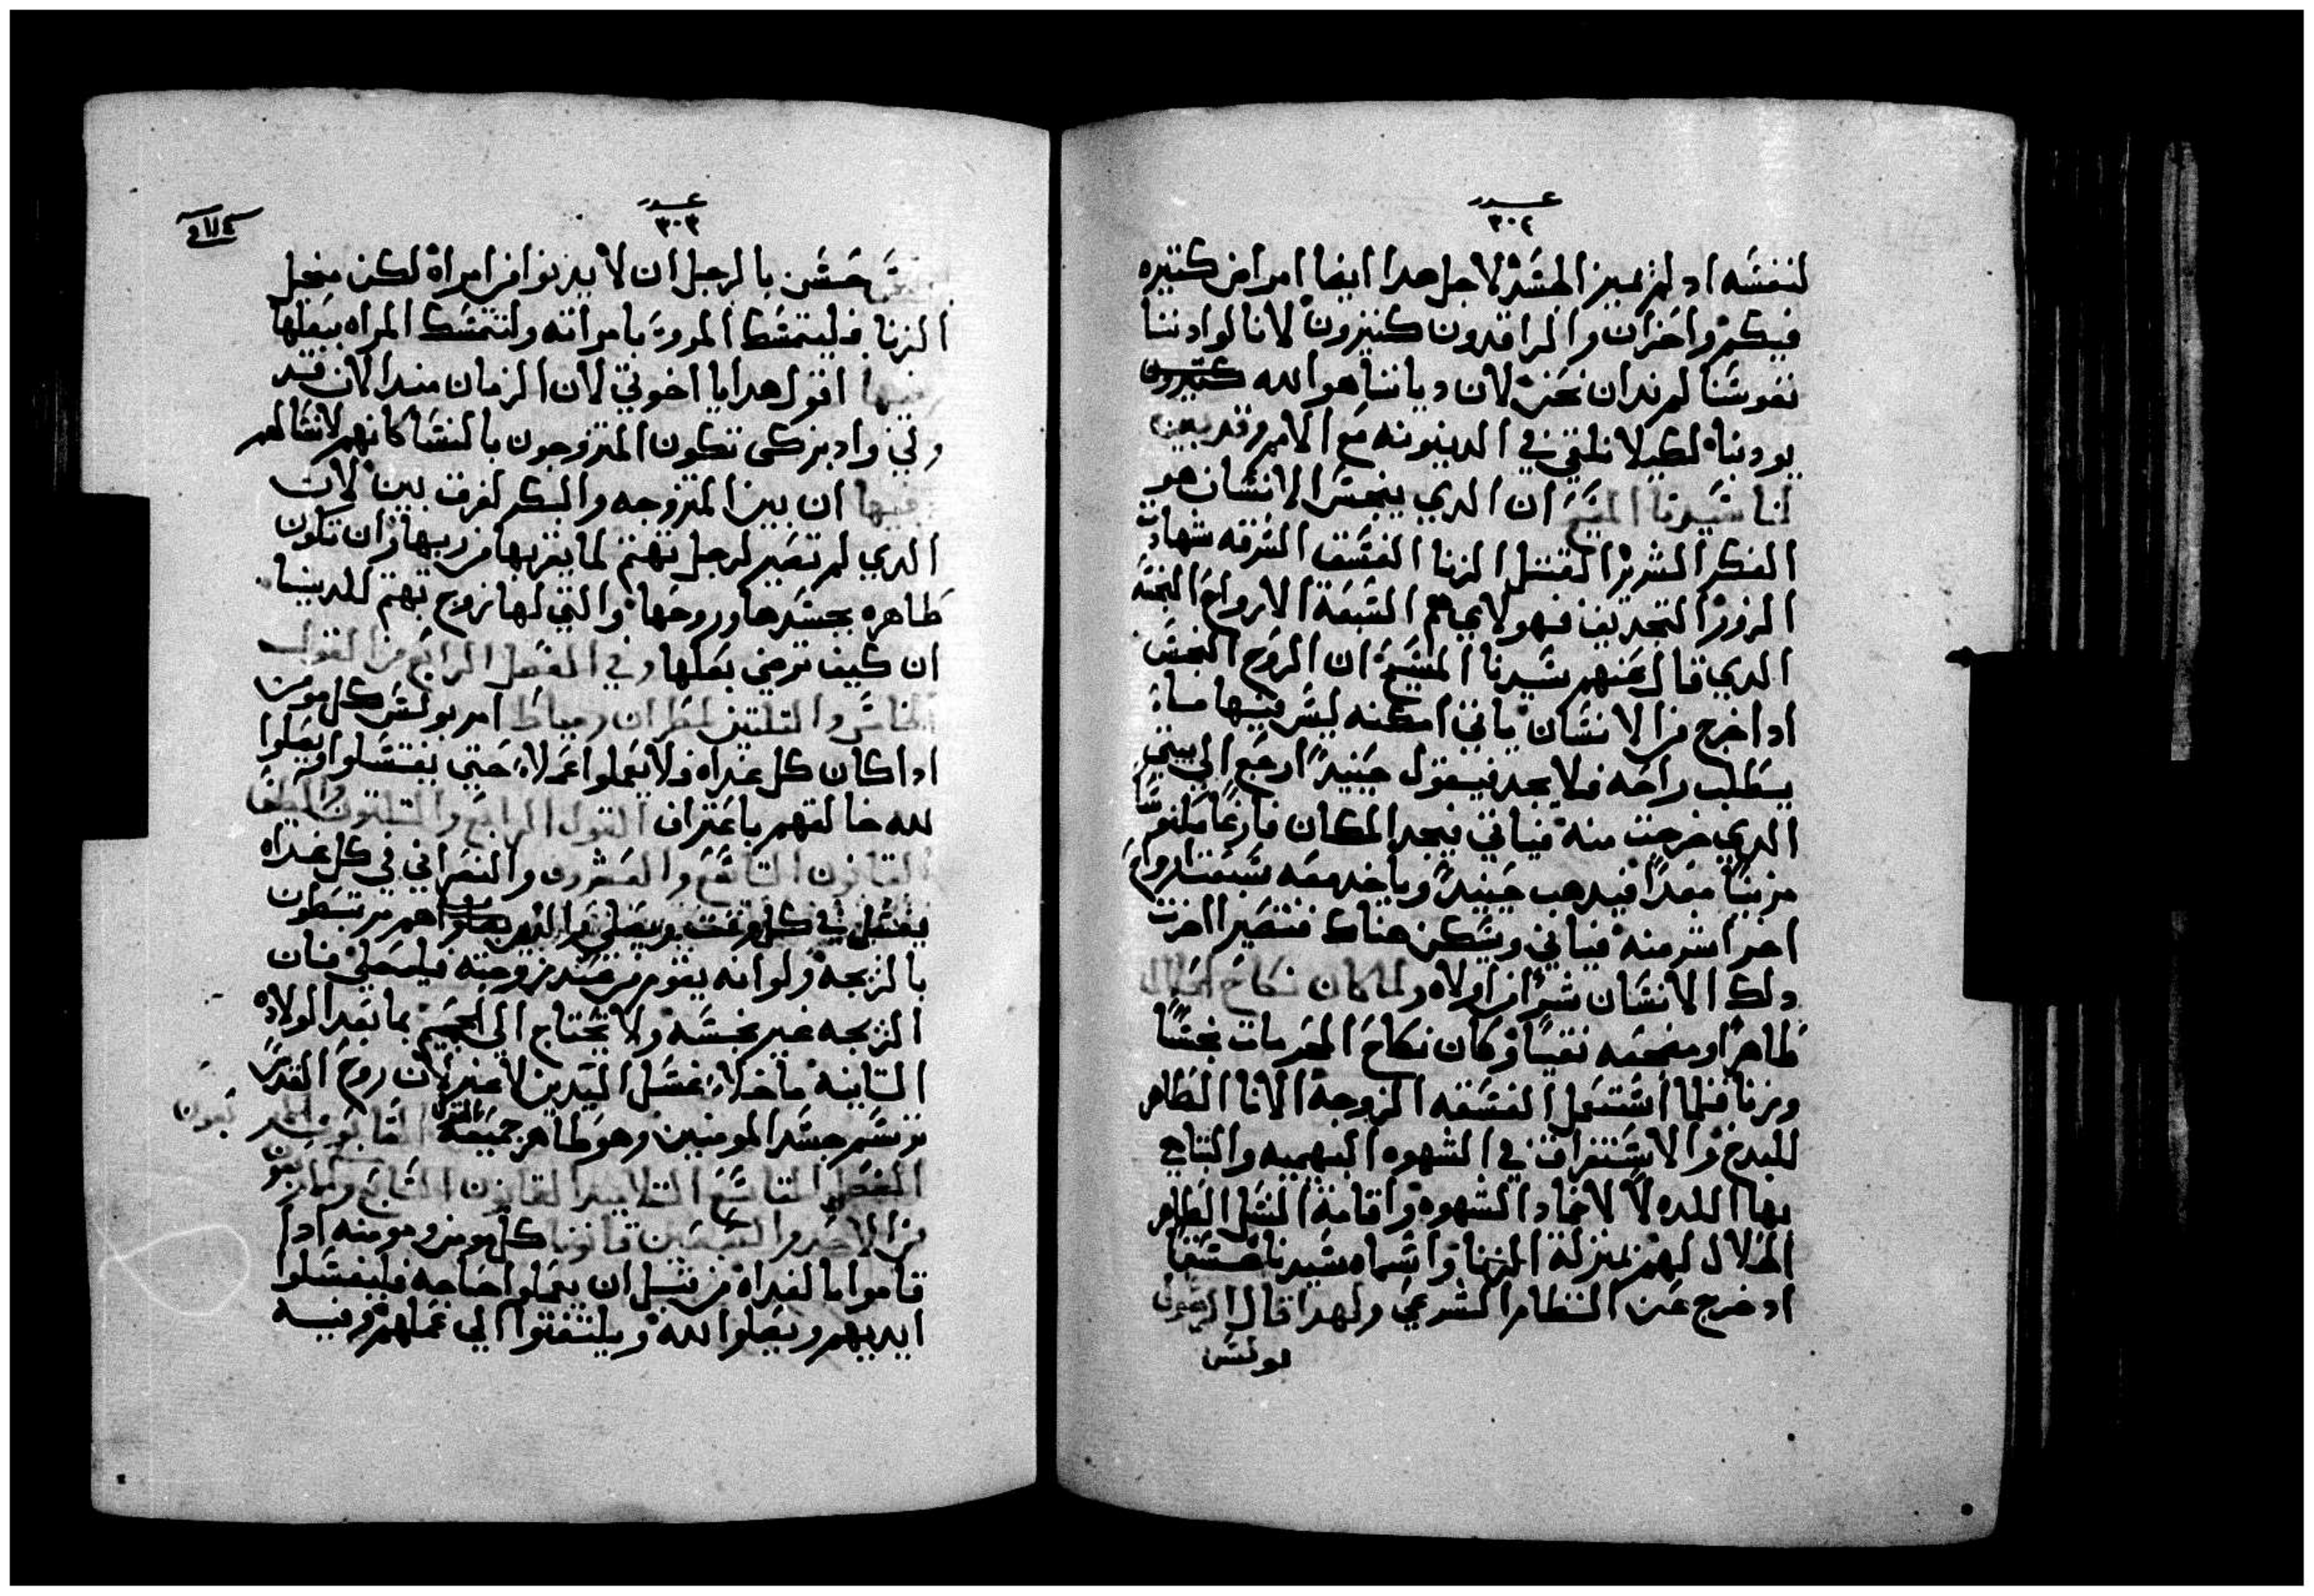 عدد
٣٠٢
لنفسه اد لم يميز الجسد لاجل هدا ايضا امراض كتيره
فيكم واحزان والراقدون كتيرون لانا لو ادننا
نفوسنا لم ندان نحن لان ودياننا هو الله
يودبنا لكيلا نلقي في الدينونه مع الامم وقد بين
لنا سيدنا المسيح ان الدي ينجس الانسان هو
الفكر الشرير القتل الزنا الفسق السرقه شهادت
الزور التجديف فهولاي هم السبعة الارواح النجسه
الدي قال عنهم سيدنا المسيح ان الروح النجس
ادا خرج من الانسان ياتي امكنه ليس فيها ماء
يطلب راحه فلا يجد فيقول حينيدٍ ارجع الي بيتي
الدي خرجت منه فياتي فيجد المكان فارغا مكنوسًا
مزينًا معدًا فيدهب حينيدٍ وياخد معه سبعت ارواح
اخر اشر منه فياتي ويسكن هناك فتصير اخرت
دلك الانسان شرًا من اولاه ولما كان نكاح الحلال
طاهرًا ومضجعه نقيًا وكان نكاح المحرمات نجسًا
وزنا فلما استعمل الفسقه الزوجة الانا الطاهر
للبدخ والاستغراق في الشهوه البهيميه والتناهي
بها اللده لا لاخماد الشهوه واقامة النسل الطاهر
الحلال لهم بمنزلة الزنا واسماه سيدنا فسقا
اد خرج عن النظام الشرعي ولهدا قال الرسول
بولس
عدد
٣٠٣
حسن بالرجل ان لا يدنوا من امراة لكن من اجل
الزنا فليتمسك المرو بامراته ولتتمسك المراه ببعلها
وفيها اقول هدا يا اخوتي لان الزمان مند الان قد
ولي وادبر كي تكون المتزوجون بالنسا كانهم لا نسا لهم
وفيها ان بين المتزوجه والبكر لفرق بين لان
الدي لم تصير لرجل تهتم لما يقربها من ربها وان تكون
طاهره بجسدها وروحها والتي لها زوج تهتم للدينا
ان كيف ترضي بعلها وفي الفصل الرابع من القول
الخامس والتلتين لمطران دمياط امر بولس كل مومن
ادا كان كل غداه فلا يعملوا عملا حتي يغتسلوا ويصلوا
لله خالقهم باعتراف القول الرابع والتلتون
القانون التاسع والعشرون والنصراني في كل غداه
يغتسل في كل وقت ويصلي والدين هم مرتبطون
بالزيجه ولو انه يقوم من عند زوجته فليصلي فان
الزيجه غير نجسه ولا يحتاج الي الحميم بما بعد الولاده
التانيه ما خلا غسل اليدين لا غير لان روح القدس
ترسم جسد المومنين وهو طاهر جميعه
الفصل التاسع التلاتين القانون السابع واربعون
من الاحد والسبعين قانونا كل مومن ومومنه ادا
قاموا بالغداه من قبل ان يعملوا حاجه فليغسلوا
ايديهم ويصلوا لله ويلتفتوا الي عملهم وفيه